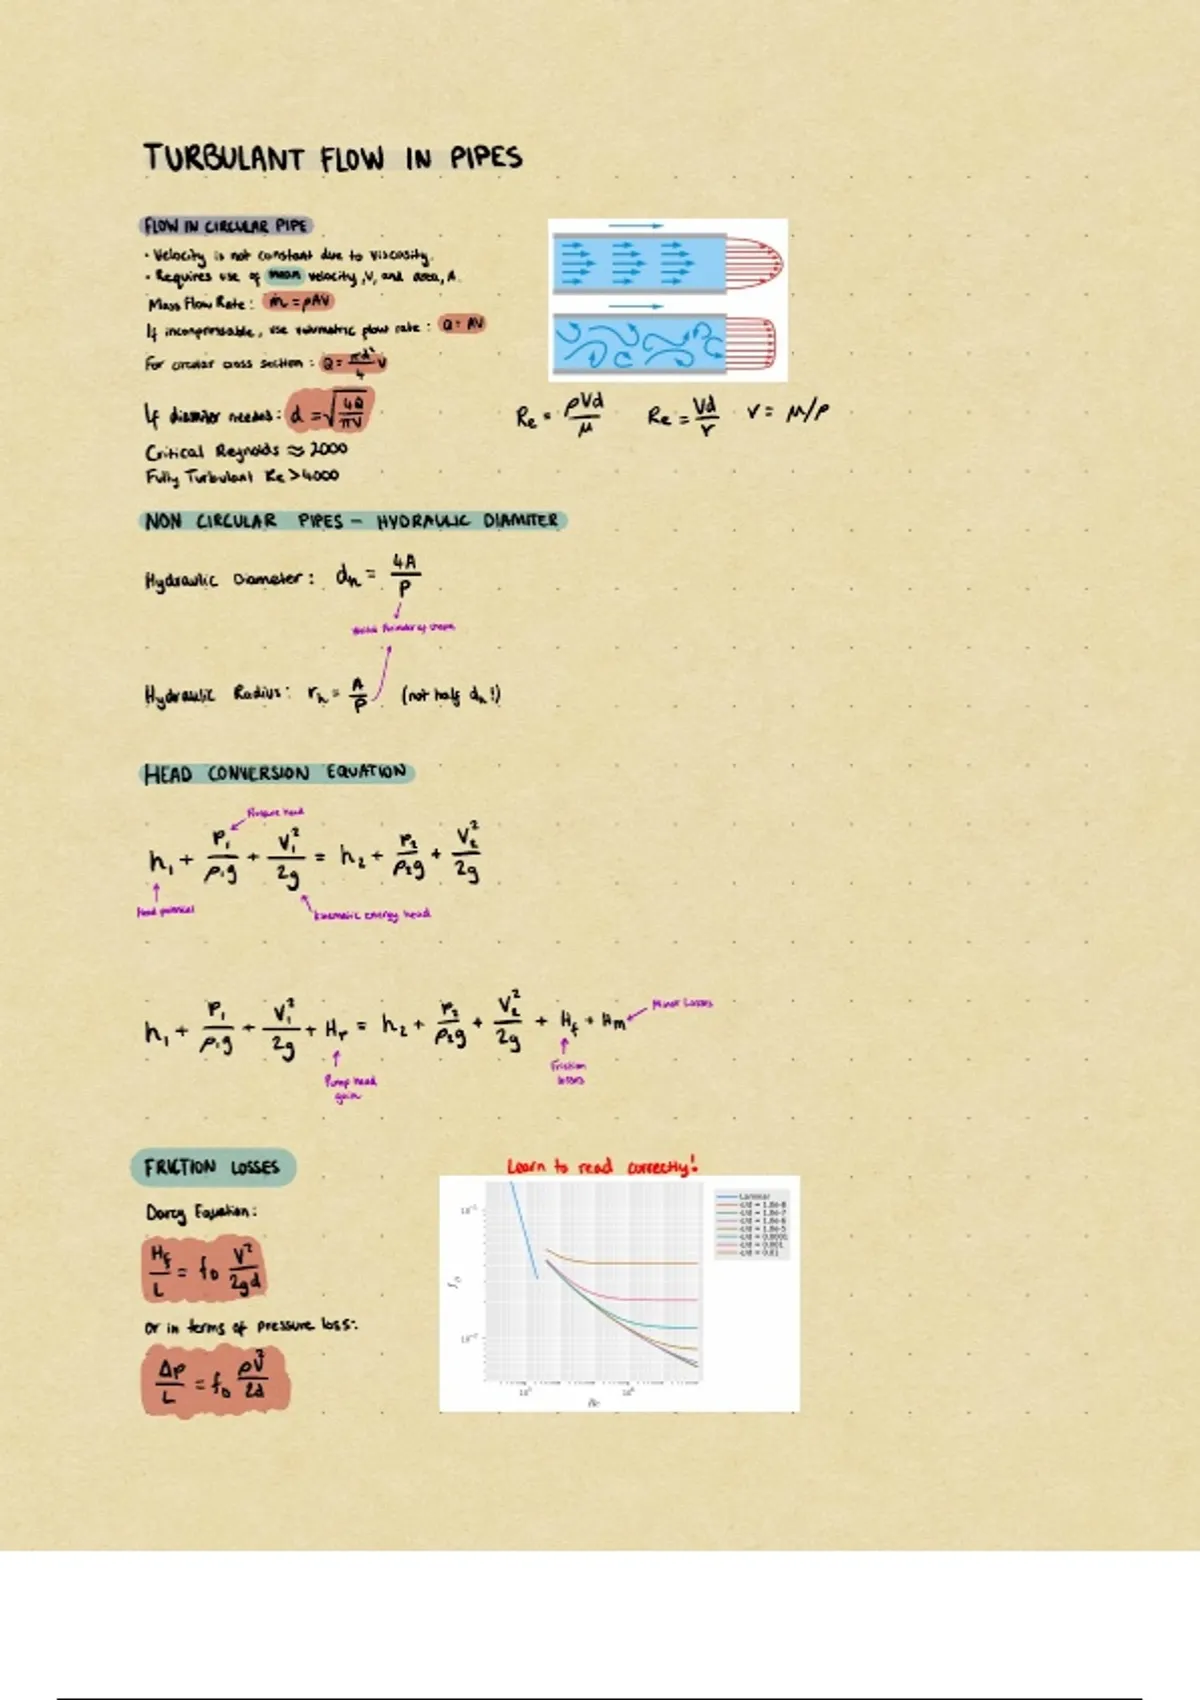 TURBULANT FLOW IN PIPES
FLOW IN CIRCULAR PIPE
• Velocity is not constant due to viscosity.
• Requires use of mean velocity, V, and area, A.
Mass Flow Rate: ṁ = ρAV
If incompressable, use volumetric flow rate: Q = AV
For circular cross section: Q = πd²/4 V
If diamiter needed: d = √(4Q/πV)
Critical Reynolds ≈ 2000
Fully Turbulant Re > 4000
Re = ρVd/μ Re = Vd/v v = μ/ρ
NON CIRCULAR PIPES – HYDRAULIC DIAMITER
Hydraulic Diameter: dₕ = 4A/P
Hydraulic Radius: rₕ = A/P (not half dₕ!)
HEAD CONVERSION EQUATION
Pressure head
h₁ + P₁/ρ₁g + V₁²/2g = h₂ + P₂/ρ₂g + V₂²/2g
Head potential
kinematic energy head
h₁ + P₁/ρ₁g + V₁²/2g + Hᵣ = h₂ + P₂/ρ₂g + V₂²/2g + H_f + Hm
Minor Losses
Pump head
gain
Friction
losses
FRICTION LOSSES
Darcy Equation:
H_f/L = f_D V²/2gd
or in terms of pressure loss:
Δp/L = f_D ρV²/2d
Learn to read correctly!
Laminar
ε/d = 1.0e-8
ε/d = 1.0e-7
ε/d = 1.0e-6
ε/d = 1.0e-5
ε/d = 0.0001
ε/d = 0.001
ε/d = 0.01
f_D
10⁻¹
10⁻²
Re